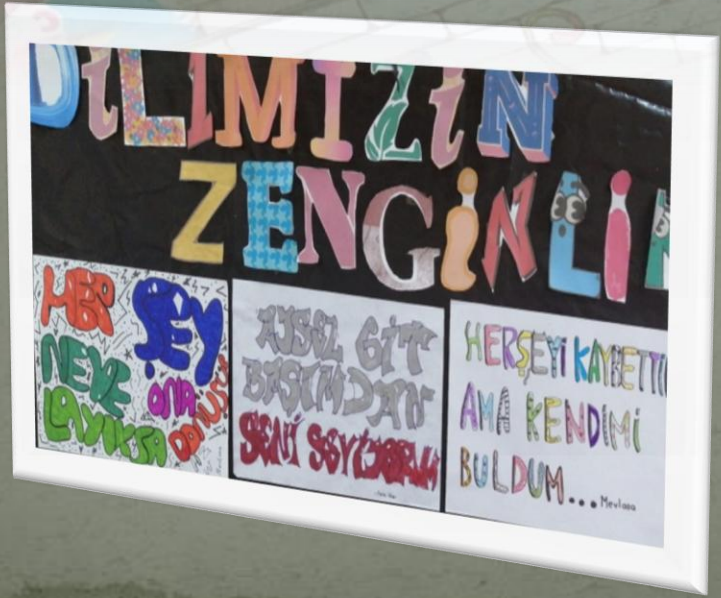 DiLIMIZiN
ZENGiNLiK
HER ŞEY
NEYE
LAYIKSA ONA DÖNÜŞÜR
AYSEL GİT
BAŞIMDAN
SENİ SEVİYORUM
HERŞEYi KAYBETTi
AMA KENDIMi
BULDUM... Mevlana